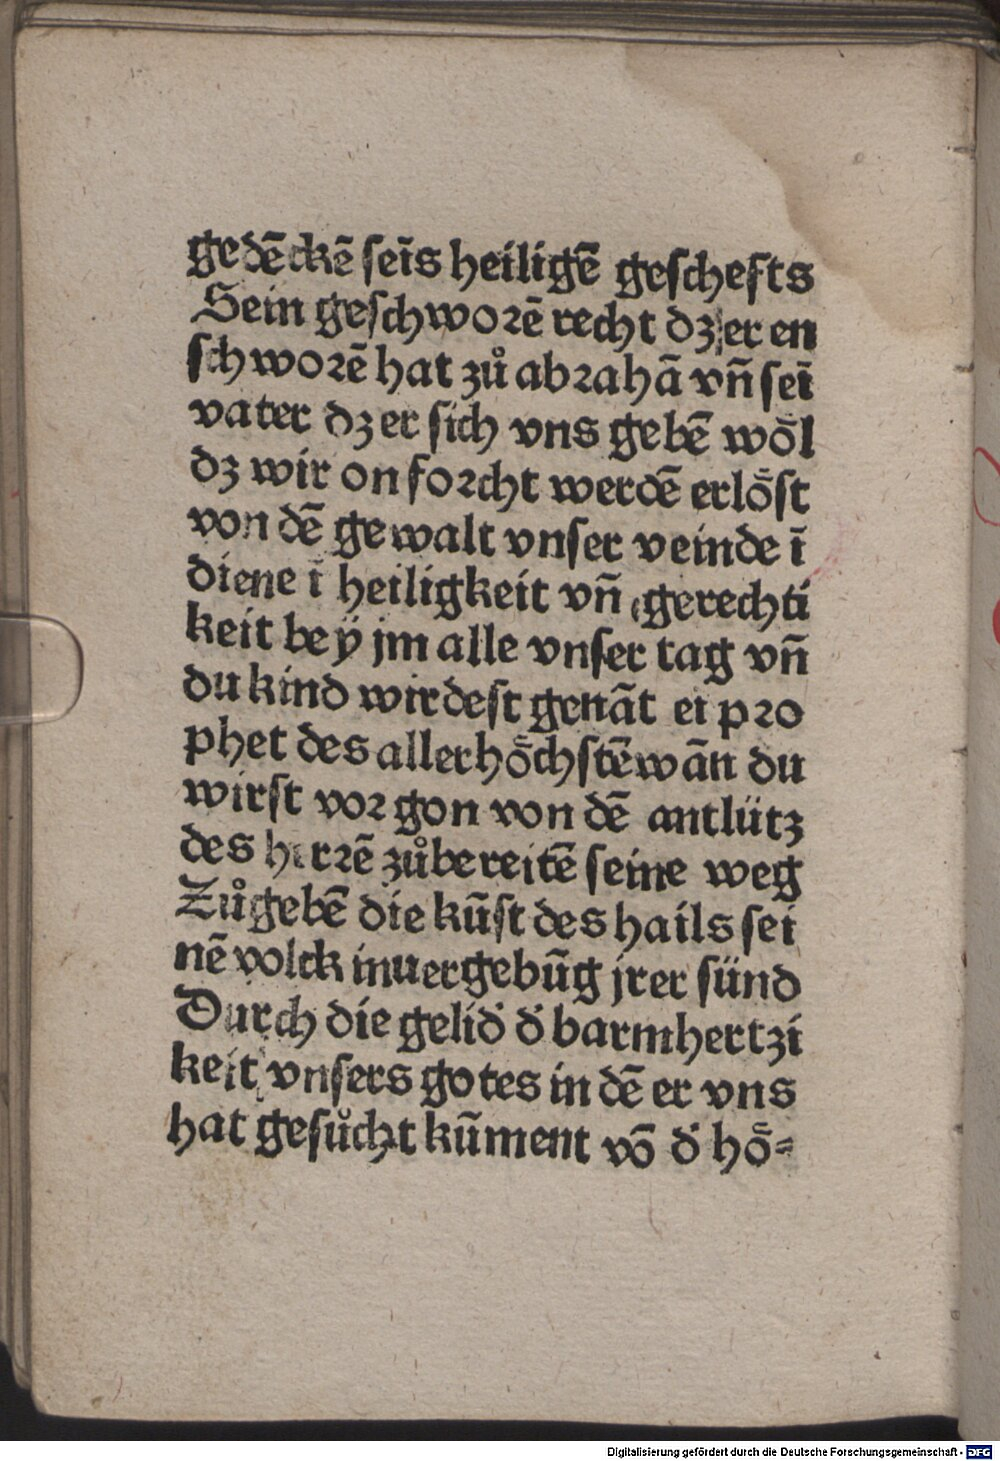 gedēckē seīs heiligē geschefts
Sein geschworē recht dz er en
schworē hat zů abrahā vn̄ seī
vater dz er sich vns gebē woͤl
dz wir on forcht werdē erloͤst
von dē gewalt vnser veinde ī
diene ī heiligkeit vn̄ gerechti
keit bey jm alle vnser tag vn̄
du kind wirdest genāt ei pro
phet des allerhoͤchstē wān du
wirst vor gon von dē antlütz
des herrē zůbereitē seine weg
Zůgebē die kūst des hails sei
nē volck in uergebūg jrer sünd
Durch die gelid' d' barmhertzi
keit vnsers gotes in dē er vns
hat gesůcht kūment vō d' hoͤ=
Digitalisierung gefördert durch die Deutsche Forschungsgemeinschaft - DFG